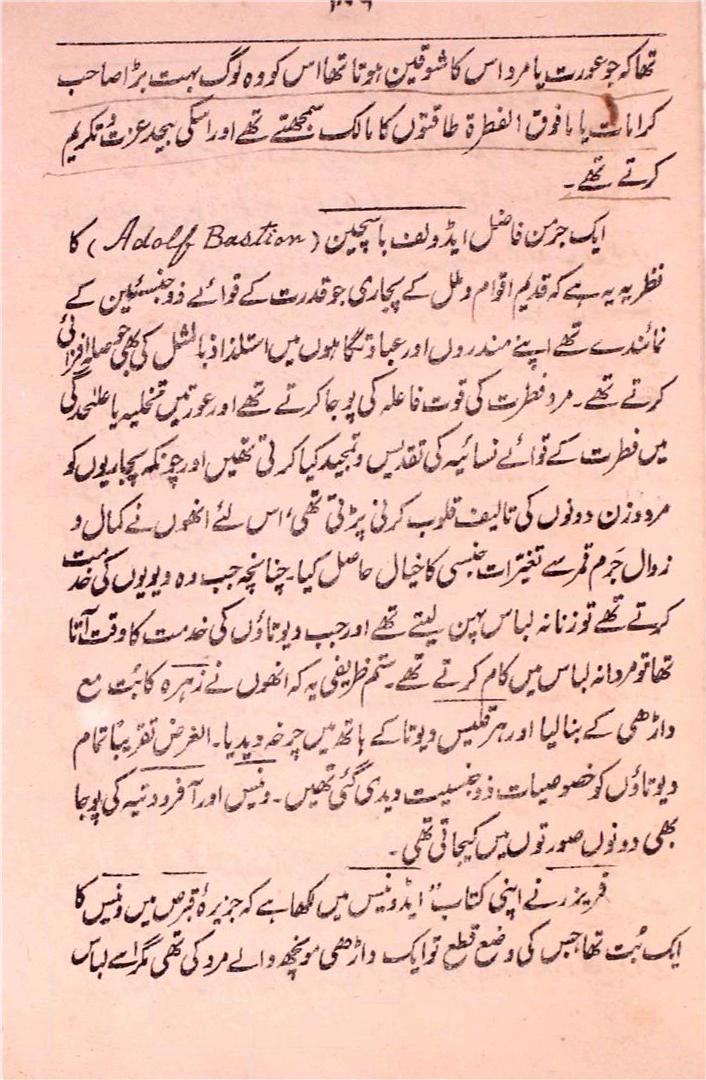 تھا کہ جو عورت یا مرد اس کا شوقین ہوتا تھا اس کو وہ لوگ بہت بڑا صاحب
کرامات یا مافوق الفطرۃ طاقتوں کا مالک سمجھتے تھے اور اسکی بیحد عزت و تکریم
کرتے تھے۔
ایک جرمن فاضل ایڈولف باسچین (Adolf Bastion) کا
نظریہ یہ ہے کہ قدیم اقوام و ملل کے پجاری جو قدرت کے قوائے ذوجنسیئن کے
نمائندے تھے اپنے مندروں اور عبادتگاہوں میں استلذاذ بالمثل کی بھی حوصلہ افزائی
کرتے تھے۔ مرد فطرت کی قوت فاعلہ کی پوجا کرتے تھے اور عورتیں تخلیہ یا علٰحدگی
میں فطرت کے قوائے نسائیہ کی تقدیس و تمجید کیا کرتی تھیں اور چونکہ پجاریوں کو
مرد و زن دونوں کی تالیف قلوب کرنی پڑتی تھی، اس لئے انھوں نے کمال و
زوال جَرم قمر سے تغیّرات جنسی کا خیال حاصل کیا۔ چنانچہ جب وہ دیویوں کی خدمت
کرتے تھے تو زنانہ لباس پہن لیتے تھے اور جب دیوتاؤں کی خدمت کا وقت آتا
تھا تو مردانہ لباس میں کام کرتے تھے۔ ستم ظریفی یہ کہ انھوں نے زہرہ کا بُت مع
داڑھی کے بنا لیا اور ہرقلیس دیوتا کے ہاتھ میں چرخہ دیدیا۔ الغرض تقریباً تمام
دیوتاؤں کو خصوصیات ذوجنسیت دیدی گئی تھیں۔ ونیس اور آفرودتیہ کی پوجا
بھی دونوں صورتوں میں کیجاتی تھی۔
فریزر نے اپنی کتاب "ایڈونیس میں لکھا ہے کہ جزیرۂ قبرص میں ونیس کا
ایک بُت تھا، جس کی وضع قطع تو ایک داڑھی مونچھ والے مرد کی تھی مگر اسے لباس